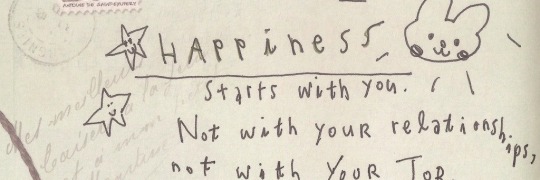 HAppiness
Starts with you.
Not with your relationships,
not with YOUR JOB